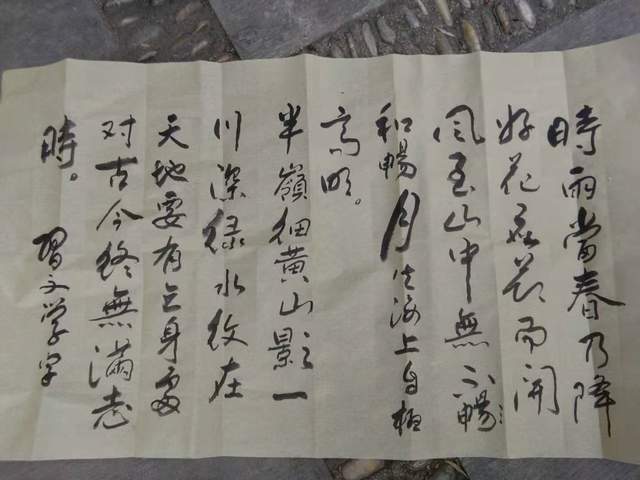 時雨當春乃降
好花而開
風至山中無不暢
和暢月生海上自
高明。
半嶺細黄山影一
川深緑水紋在
天地要有立身處
对古今終無滿志
時。
習文学字